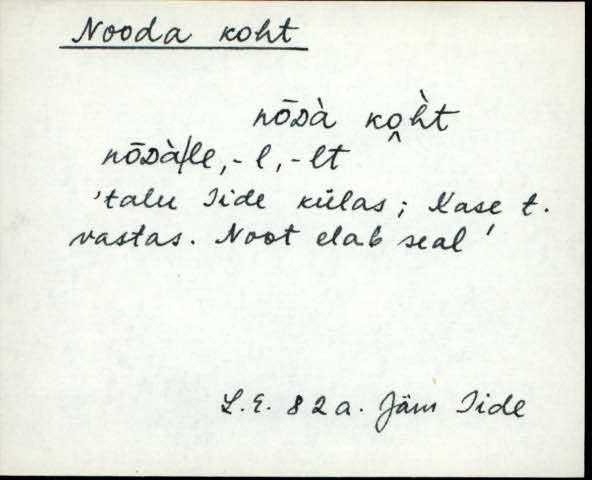 Nooda koht
nōᴅà ko̭h̀t
nōᴅà/le, -l, -lt
'talu Iide külas; Kase t.
vastas. Noot elab seal'
L.E. 82a. Jäm Iide